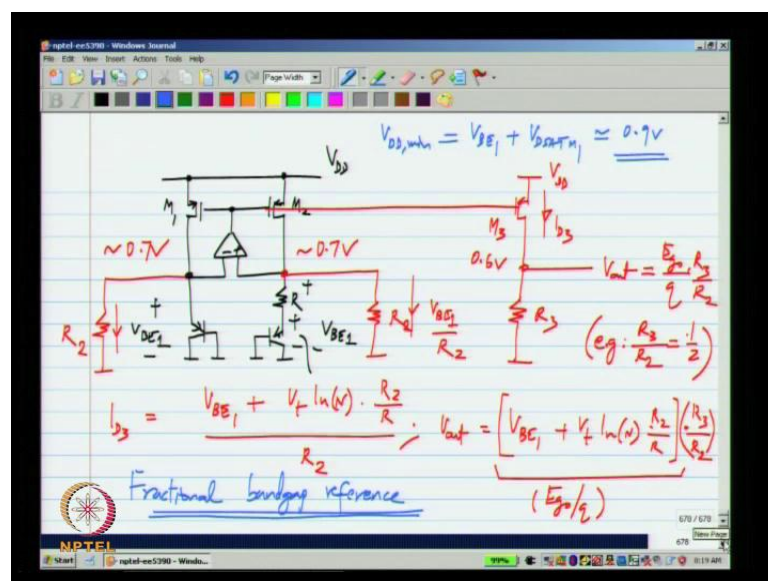 nptel-ee5390 - Windows Journal
File Edit View Insert Actions Tools Help
Page Width
V_DD,min = V_BE1 + V_DSAT M1 ≃ 0.9V
V_DD
V_DD
M1
M2
M3
I_D3
~0.7V
~0.7V
0.6V
V_out = E_go/q R3/R2
R2
+
V_BE1
-
R
+
+
V_BE1
-
R2
V_BE1/R2
R3
(eg: R3/R2 = 1/2)
I_D3 = (V_BE1 + V_t ln(N) · R2/R) / R2
V_out = [V_BE1 + V_t ln(N) R2/R] (R3/R2)
(E_go/q)
Fractional bandgap reference
NPTEL
678 / 678
New Page
678
Start
nptel-ee5390 - Windo...
99%
8:19 AM